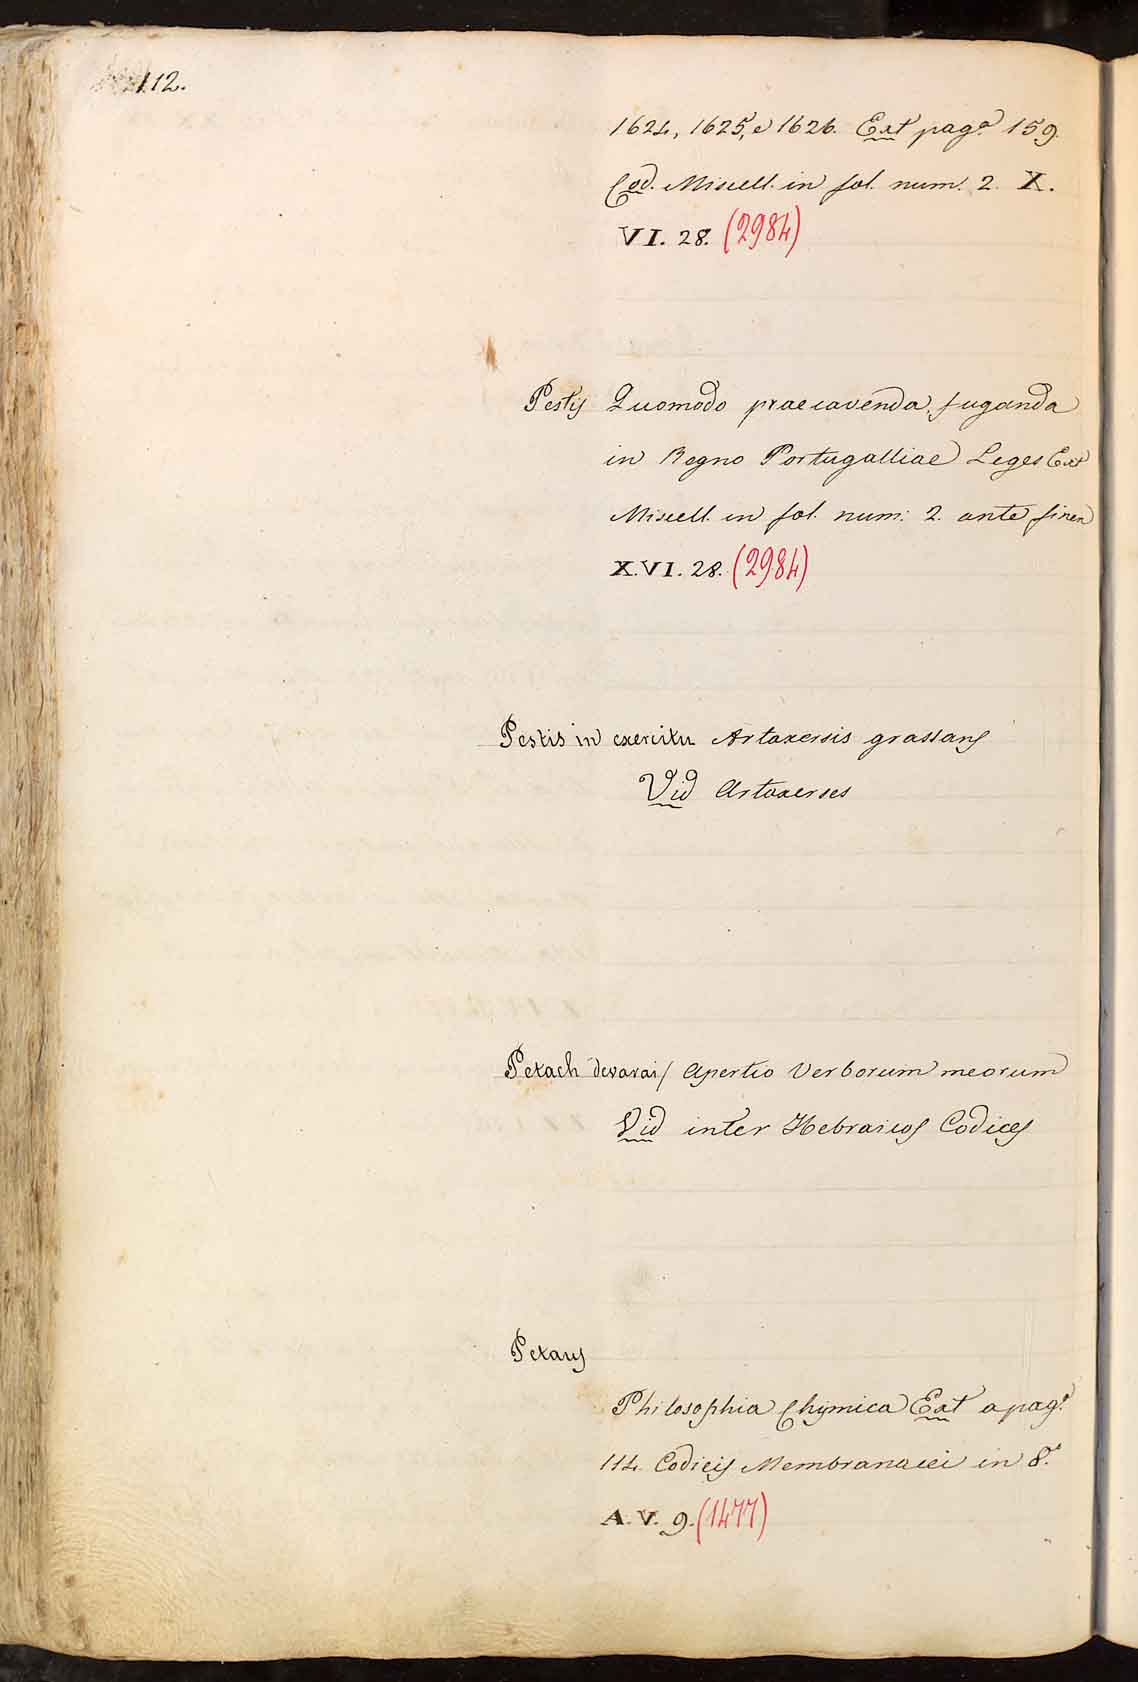 112.
1624, 1625, e 1626. Ext pag.ª 159.
Cod. Miscell. in fol. num. 2. X.
VI. 28. (2984)
Pestis Quomodo praecavenda, fuganda
in Regno Portugalliae Leges Ext
Miscell. in fol. num: 2. ante finem
X.VI. 28. (2984)
Pestis in exercitu Artaxersis grassans
Vid Artaxerses
Petach devarai / Apertio Verborum meorum
Vid inter Hebraicos Codices
Petrus
Philosophia Chymica Ext a pag.ª
114. Codicis Membranacei in 8.º
A. V. 9. (1477)